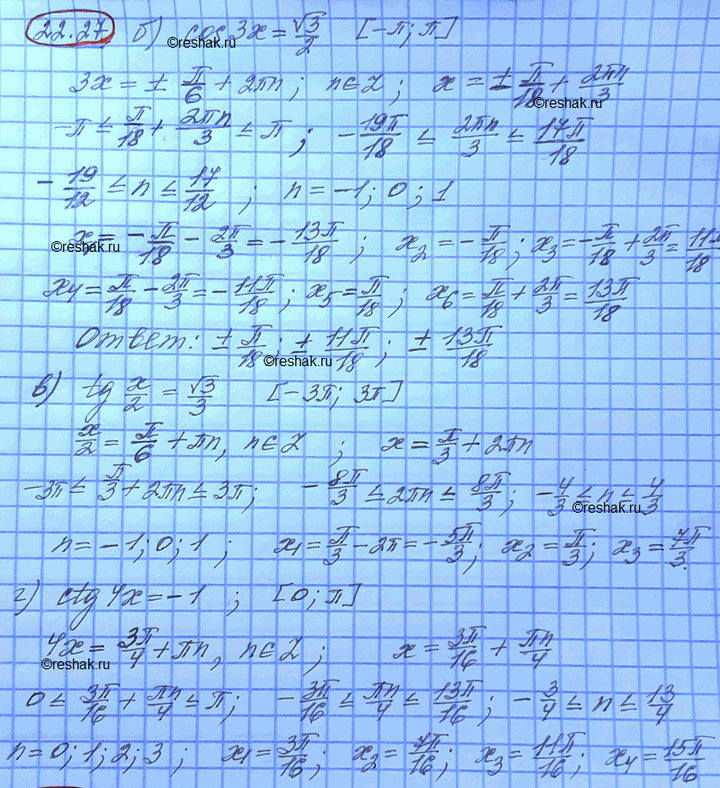 22.27 б) cos 3x = √3/2 [-π; π]
©reshak.ru
3x = ± π/6 + 2πn; n∈Z; x = ± π/18 + 2πn/3
©reshak.ru
-π ≤ π/18 + 2πn/3 ≤ π; -19π/18 ≤ 2πn/3 ≤ 17π/18
-19/12 ≤ n ≤ 17/12; n = -1; 0; 1
x₁ = -π/18 - 2π/3 = -13π/18; x₂ = -π/18; x₃ = -π/18 + 2π/3 = 11π/18
©reshak.ru
x₄ = π/18 - 2π/3 = -11π/18; x₅ = π/18; x₆ = π/18 + 2π/3 = 13π/18
Ответ: ± π/18; ± 11π/18; ± 13π/18
©reshak.ru
в) tg x/2 = √3/3 [-3π; 3π]
x/2 = π/6 + πn, n∈Z; x = π/3 + 2πn
-3π ≤ π/3 + 2πn ≤ 3π; -8π/3 ≤ 2πn ≤ 8π/3; -4/3 ≤ n ≤ 4/3
©reshak.ru
n = -1; 0; 1; x₁ = π/3 - 2π = -5π/3; x₂ = π/3; x₃ = 7π/3.
г) ctg 4x = -1; [0; π]
4x = 3π/4 + πn, n∈Z; x = 3π/16 + πn/4
©reshak.ru
0 ≤ 3π/16 + πn/4 ≤ π; -3π/16 ≤ πn/4 ≤ 13π/16; -3/4 ≤ n ≤ 13/4
n = 0; 1; 2; 3; x₁ = 3π/16; x₂ = 7π/16; x₃ = 11π/16; x₄ = 15π/16